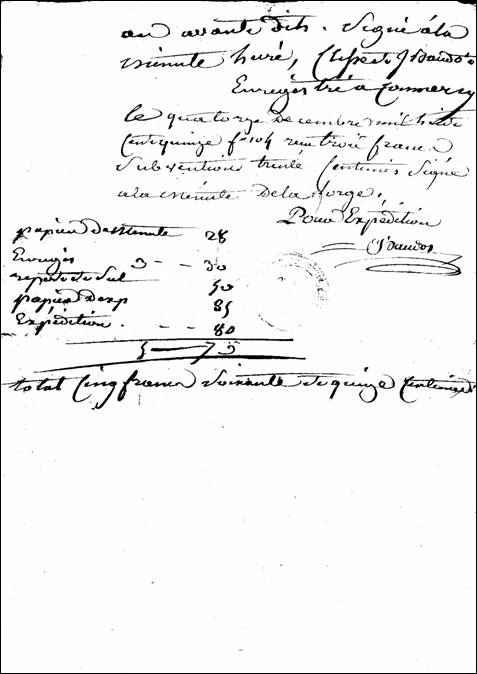 an avant dits. Signé à la
minute huré, et J Baudot
Enregistré a Commercy
le quatorze Decembre mil huit
Cent quinze fo 104 reçu trois francs
Subvention trente Centimes Signé
a la Minute Delaforge.
Pour Expédition
JBaudot
papier de Minute 28
Enregis 3 - - 30
50
papier Dexp 85
Expédition . - - 80
5 75
total Cinq francs Soixante et quinze Centimes